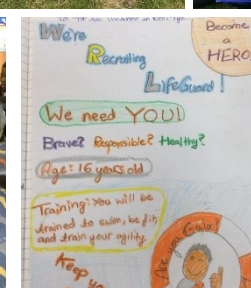 We're
Recruiting
LifeGuard!
Become
a
HERO
We need YOU!
Brave? Responsible? Healthy?
Age: 16 years old
Training: You will be
trained to swim, be fit,
and train your agility
Keep
Are you Calm?